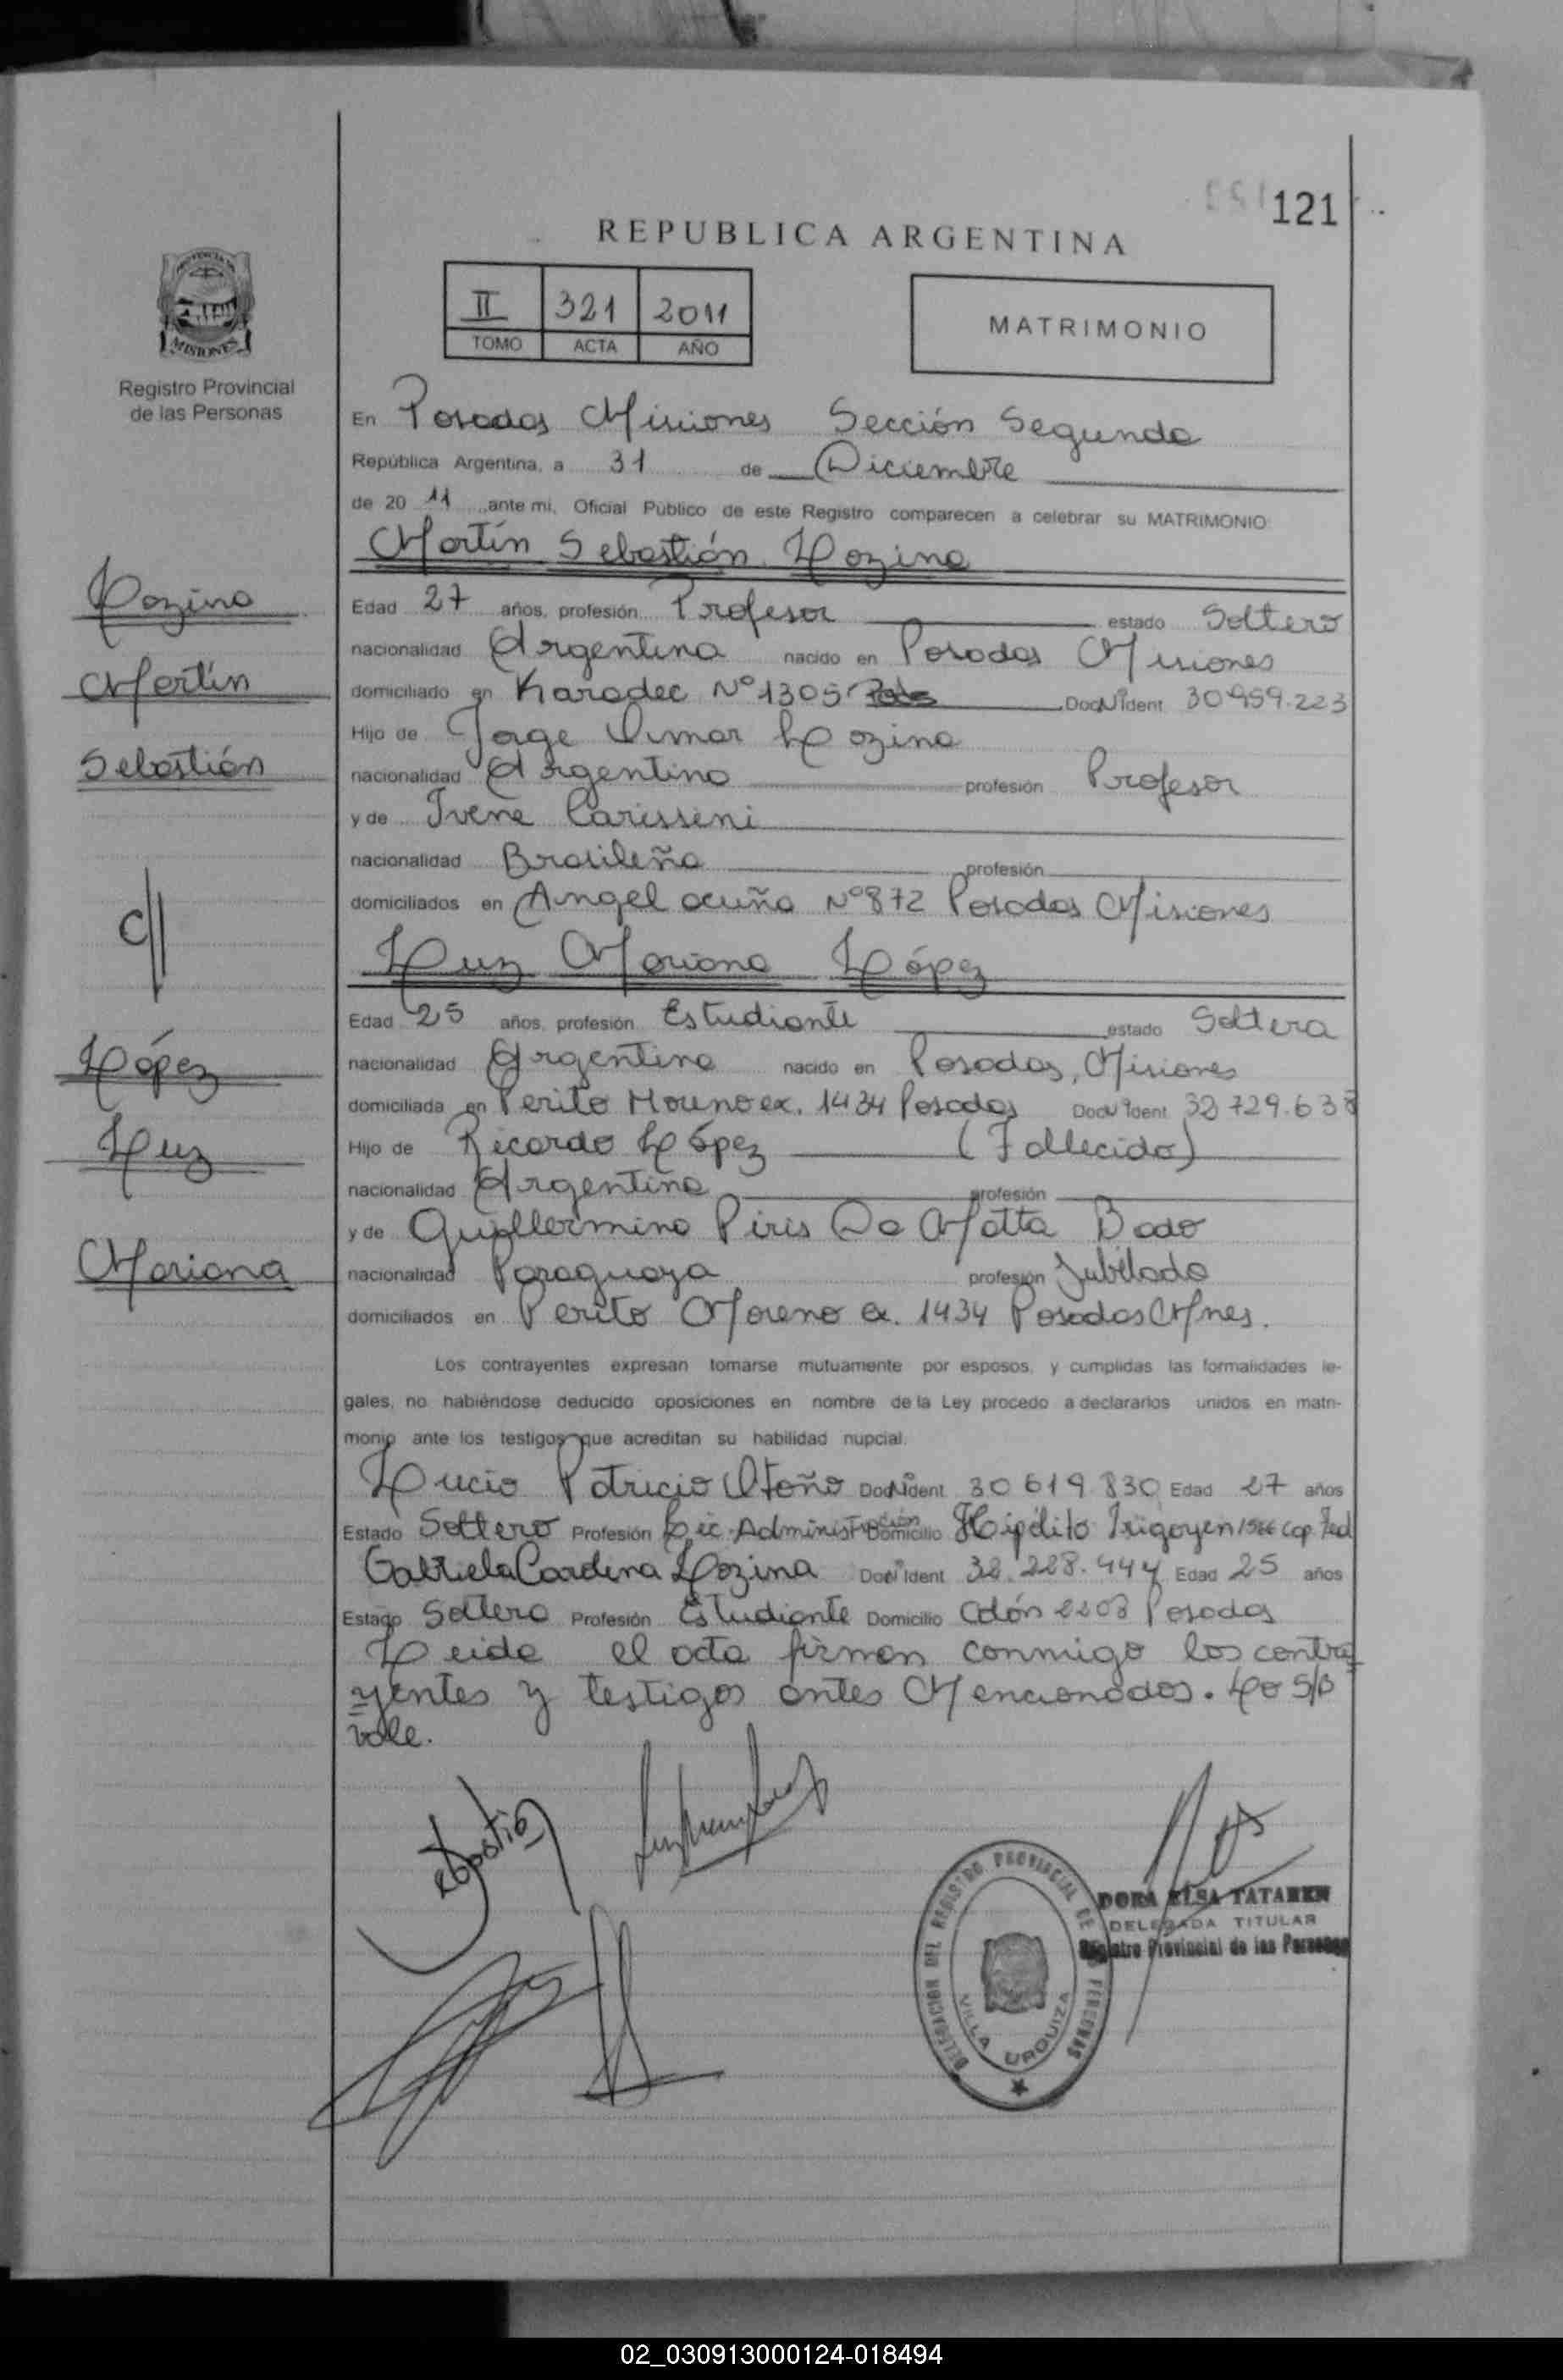 121
REPUBLICA ARGENTINA
II 321 2011
TOMO ACTA AÑO
MATRIMONIO
MISIONES
Registro Provincial
de las Personas
En Posadas Misiones Sección Segunda
República Argentina, a 31 de Diciembre
de 20 11 ante mi, Oficial Público de este Registro comparecen a celebrar su MATRIMONIO:
Martín Sebastián Lozina
Edad 27 años, profesión Profesor estado Soltero
nacionalidad Argentina nacido en Posadas Misiones
domiciliado en Karadec Nº 1305 Doc Nº Ident 30.959.223
Hijo de Jorge Lozina
nacionalidad Argentina profesión Profesor
y de Ivene Carissini
nacionalidad Brasileña profesión
domiciliados en Angel acuña Nº 872 Posadas Misiones
Luz Mariana López
Edad 25 años, profesión Estudiante estado Soltera
nacionalidad Argentina nacido en Posadas, Misiones
domiciliada en Perito Moreno ex. 1434 Posadas Doc Nº Ident 32.729.638
Hijo de Ricardo López (Fallecido)
nacionalidad Argentina profesión
y de Guillermina Piris Da Motta Bado
nacionalidad Paraguaya profesión Jubilada
domiciliados en Perito Moreno ex. 1434 Posadas Mnes.
Los contrayentes expresan tomarse mutuamente por esposos, y cumplidas las formalidades le-
gales, no habiéndose deducido oposiciones en nombre de la Ley procedo a declararlos unidos en matri-
monio ante los testigos que acreditan su habilidad nupcial.
Lucio Patricio Otaño Doc Nº Ident 30.619.830 Edad 27 años
Estado Soltero Profesión Lic. Administración Domicilio Hipólito Irigoyen 1566 Cap. Fed
Gabriela Carolina Lozina Doc Nº Ident 32.228.444 Edad 25 años
Estado Soltera Profesión Estudiante Domicilio Colón 2208 Posadas
Leida el acta firman conmigo los contra
yentes y testigos antes Mencionados. Lo S/B
vale.
Lozina
Martín
Sebastián
c/
López
Luz
Mariana
DORA ELSA TATAREN
DELEGADA TITULAR
Registro Provincial de las Personas
DELEGACION DEL REGISTRO PROVINCIAL DE LAS PERSONAS
VILLA URQUIZA
02_030913000124-018494